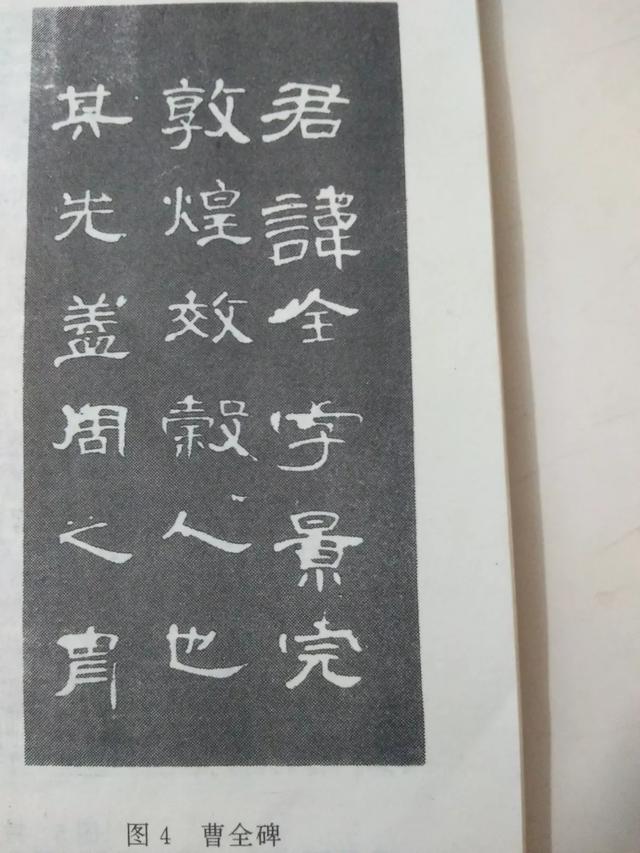 君諱全字景完
敦煌效穀人也
其先蓋周之胄
图4 曹全碑